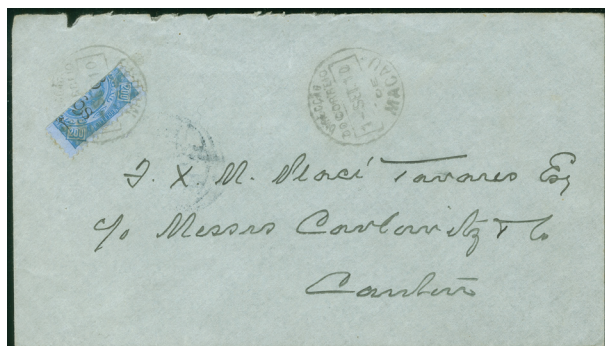 MACAU
J. X M. Placé Tavares Esq
c/o Messrs Carlowitz & Co
Canton